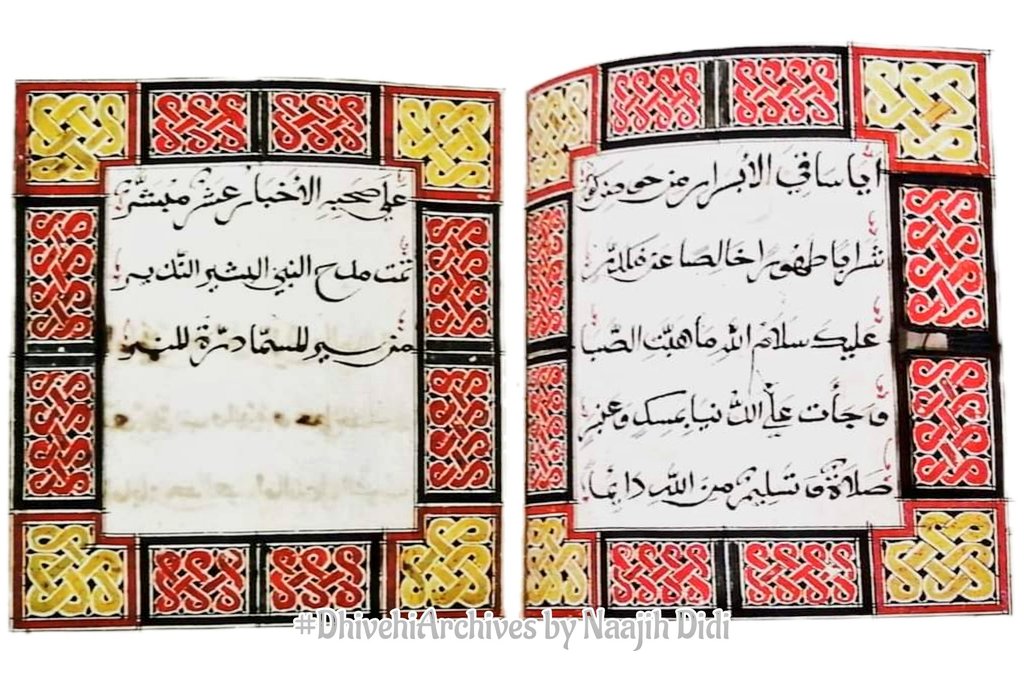 أيا ساقي الأبرار من حوض كوثر
شرابا طهورا خالصا
عليك سلام الله ما هبت الصبا
وجأت على الدنيا بمسك وعنبر
صلاة وتسليم من الله دائما
على صحبه الأخيار عشر مبشر
تمت مدح النبي البشير النذير
#DhivehiArchives by Naajih Didi